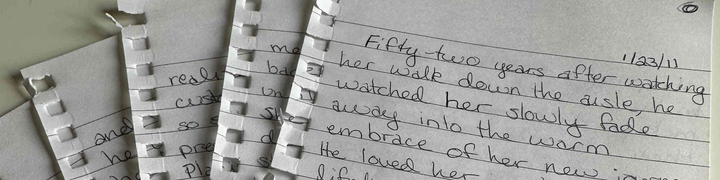 1/23/11
Fifty-two years after watching
her walk down the aisle, he
watched her slowly fade
away into the warm
embrace of her new
He loved her
me
bac
un
reali
cust
so s
pre
pla
and
he